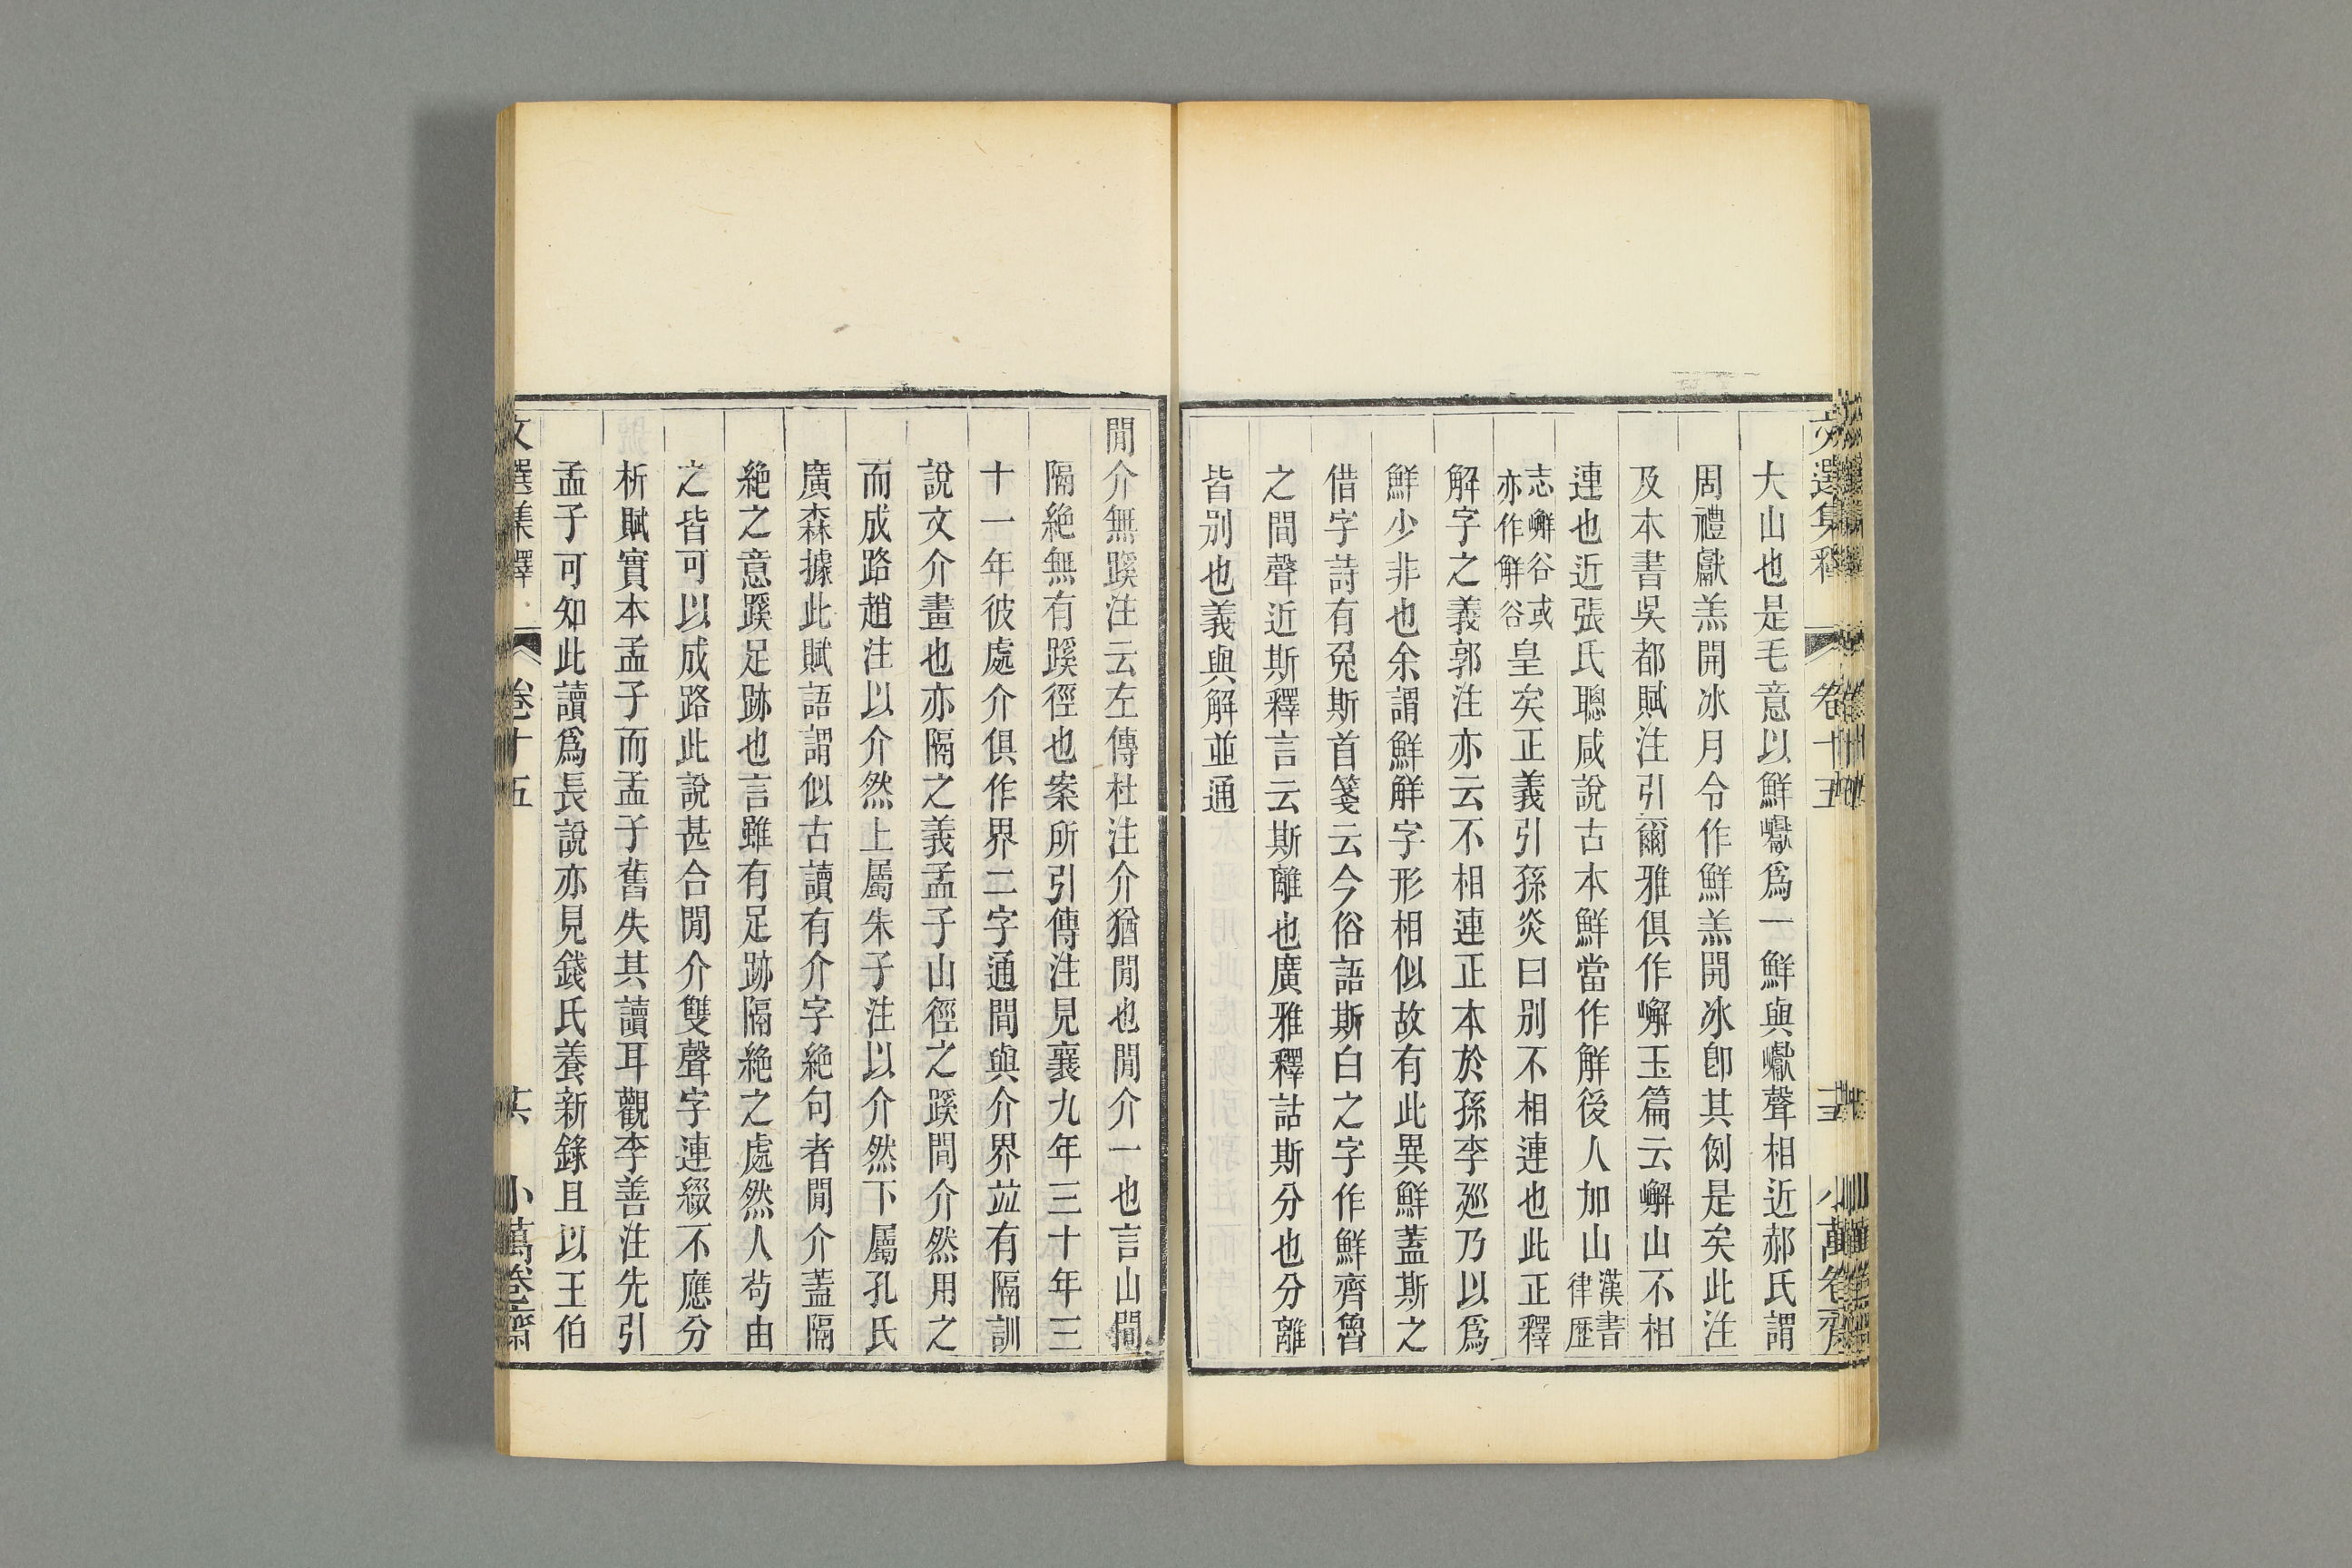 大山也是毛意以鮮巘爲一鮮與巘聲相近郝氏謂
周禮獻羔開冰月令作鮮羔開冰卽其例是矣此注
及本書吳都賦注引爾雅俱作嶰玉篇云嶰山不相
連也近張氏聰咸說古本鮮當作解後人加山漢書律歷
志嶰谷或亦作解谷皇矣正義引孫炎曰別不相連也此正釋
解字之義郭注亦云不相連正本於孫李巡乃以爲
鮮少非也余謂鮮解字形相似故有此異鮮蓋斯之
借字詩有兔斯首箋云今俗語斯白之字作鮮齊魯
之間聲近斯釋言云斯離也廣雅釋詁斯分也分離
皆別也義與解並通
閒介無蹊注云左傳杜注介猶閒也閒介一也言山間
隔絶無有蹊徑也案所引傳注見襄九年三十年三
十一年彼處介俱作界二字通間與介界竝有隔訓
說文介畫也亦隔之義孟子山徑之蹊間介然用之
而成路趙注以介然上屬朱子注以介然下屬孔氏
廣森據此賦語謂似古讀有介字絶句者閒介蓋隔
絶之意蹊足跡也言雖有足跡隔絶之處然人茍由
之皆可以成路此說甚合閒介雙聲字連綴不應分
析賦實本孟子而孟子舊失其讀耳觀李善注先引
孟子可知此讀爲長說亦見錢氏養新錄且以王伯
文選集釋 卷十五 小萬卷齋